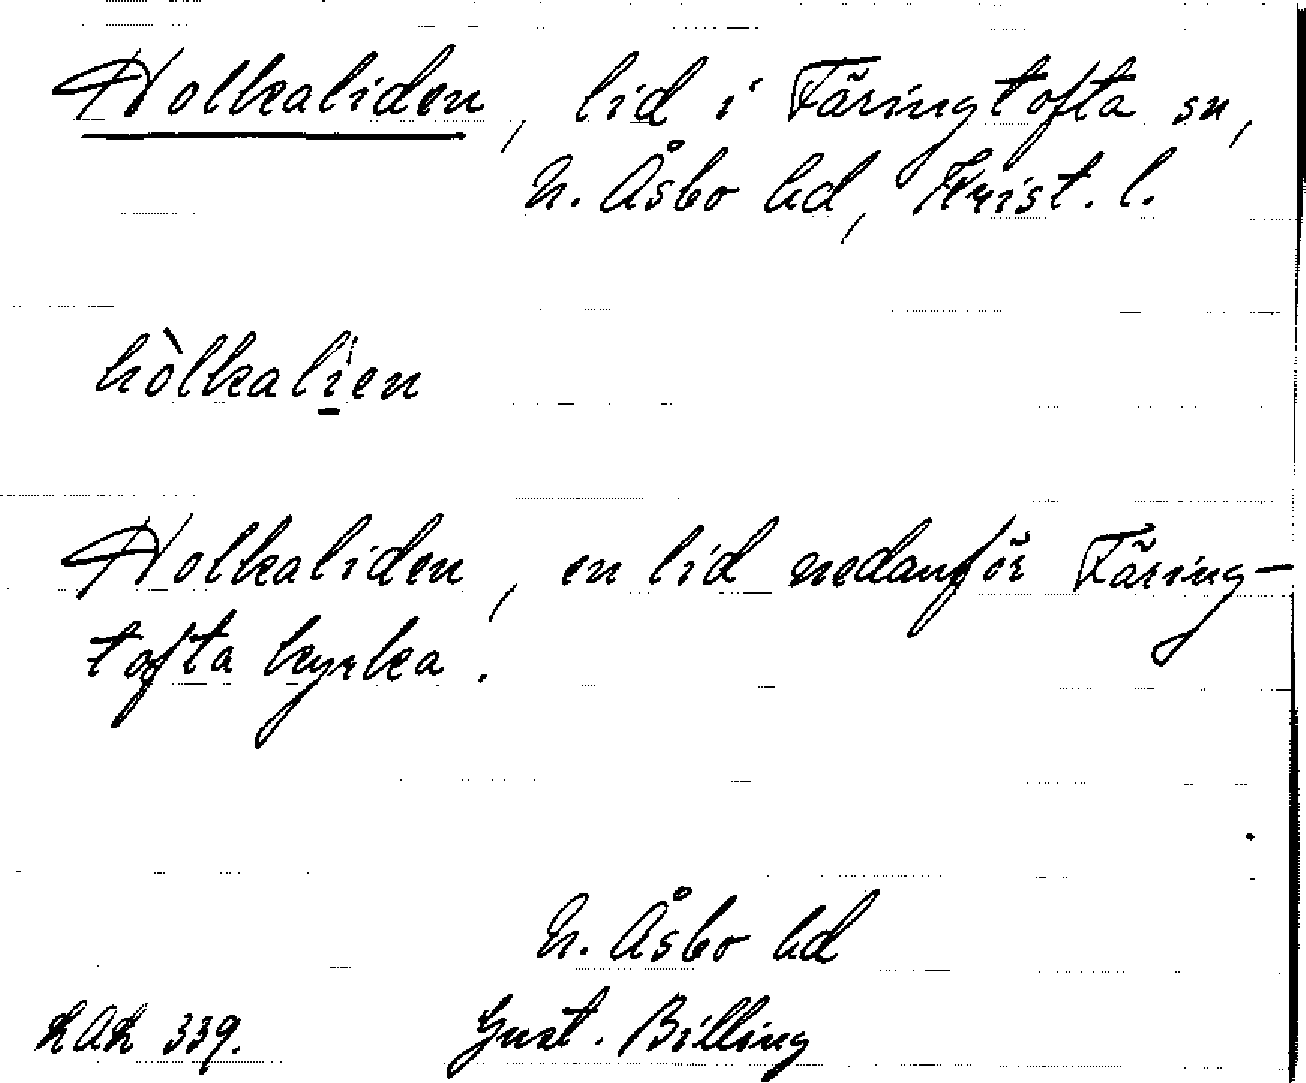 Holkaliden, lid i Färingtofta sn,
N. Åsbo hd, Krist. l.
hòlkali̱en
Holkaliden, en lid nedanför Färing-
tofta kyrka.
N. Åsbo hd
LAL 339. Gust. Billing